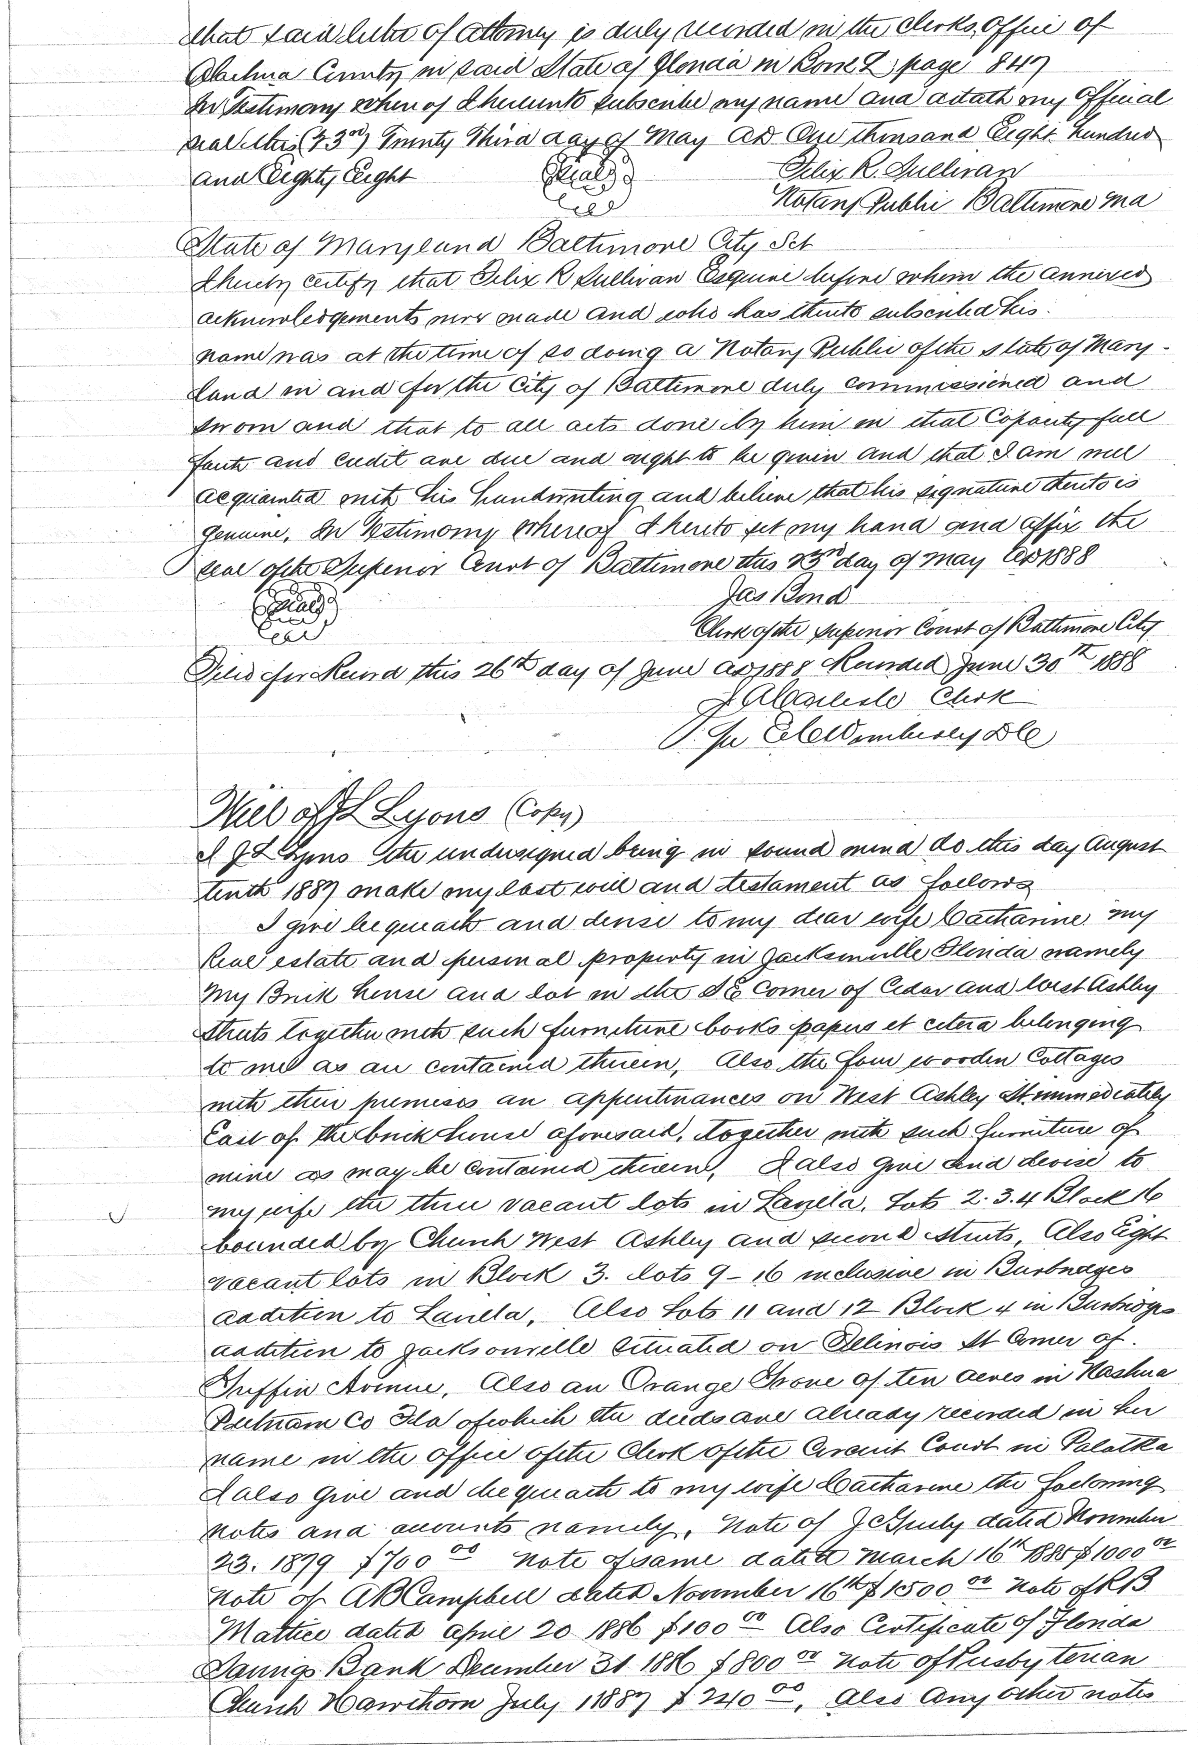 that said letter of attorney is duly recorded in the Clerks, Office of
Alachua County in said State of Florida in Book L page 847
In Testimony where of I hereunto subscribe my name and attach my official
seal this (23rd) Twenty Third day of May AD One thousand Eight hundred
and Eighty Eight (Seal) Felix R. Sullivan
Notary Public Baltimore Md
State of Maryland Baltimore City Sct
I hereby certify that Felix R Sullivan Esquire before whom the annexed
acknowledgements were made and who has thereto subscribed his
name was at the time of so doing a Notary Public of the State of Mary-
land in and for the City of Baltimore duly commissioned and
sworn and that to all acts done by him in that Capacity full
faith and credit are due and ought to be given and that I am well
acquainted with his handwriting and believe that his signature thereto is
genuine, In Testimony Whereof I hereto set my hand and affix the
seal of the Superior Court of Baltimore this 23rd day of May AD 1888
(Seal) Jas Bond
Clerk of the Superior Court of Baltimore City
Filed for Record this 26th day of June AD 1888 Recorded June 30th 1888
J A Carlisle Clerk
Per Wimberly DC
Will of J L Lyons (Copy)
I J L Lyons the undersigned being in sound mind do this day August
tenth 1887 make my last will and testament as follows
I give bequeath and devise to my dear wife Catharine my
Real estate and personal property in Jacksonville Florida namely
My Brick house and lot in the SE Corner of Cedar and West Ashley
Streets together with such furniture books papers et cetera belonging
to me as are contained therein, Also the four wooden Cottages
with their premises an appertinances on West Ashley St immediately
East of the brick house aforesaid, together with such furniture of
mine as may be contained therein, I also give and devise to
my wife the three vacant lots in Lavilla, Lots 2.3.4 Block 16
bounded by Church West Ashley and second streets, Also Eight
vacant lots in Block 3. lots 9-16 inclusive in Burbridges
addition to Lavilla, Also Lots 11 and 12 Block 4 in Burbridges
addition to Jacksonville situated on Illinois St Corner of
Griffin Avenue, Also an Orange Grove of ten acres in Nashua
Putnam Co Fla of which the deeds are already recorded in her
name in the office of the Clerk of the Circuit Court in Palatka
I also give and bequeath to my wife Catharine the following
notes and accounts namely, Note of J C dated November
23. 1879 $700 00 Note of same dated March 16th 1885 $1000 00
Note of A B Campbell dated November 16th $1500 00 Note of R B
Mattice dated April 20 1886 $100 00 Also Certificate of Florida
Savings Bank December 31 1886 $800 00 Note of Presbyterian
Church Hawthorn July 1 1887 $240 00, Also Any other notes